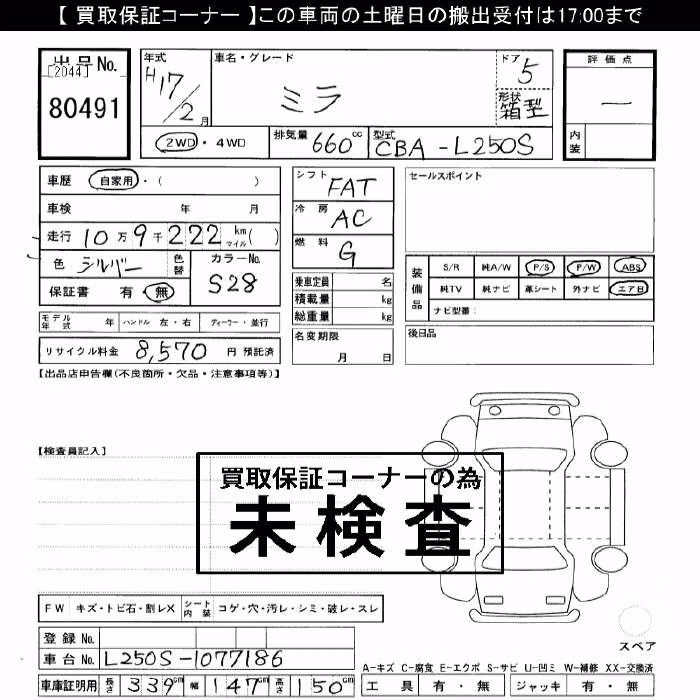 【 買取保証コーナー 】この車両の土曜日の搬出受付は17:00まで
出品 No.
[2044]
80491
年式
H17/2月
車名・グレード
ミラ
ドア
5
形状
箱型
評価点
一
内装
2WD・4WD
排気量 660cc
型式 CBA-L250S
車歴 自家用・( )
車検 年 月
走行 10万9千222km マイル( )
色 シルバー 色替
カラーNo. S28
保証書 有・無
モデル年式 年 ハンドル 左・右 ディーラー・並行
リサイクル料金 8,570 円 預託済
シフト FAT
冷房 AC
燃料 G
乗車定員 名
積載量 kg
総重量 kg
名変期限
月 日
セールスポイント
装備品
S/R 純A/W P/S P/W ABS
純TV 純ナビ 革シート 外ナビ エアB
ナビ型番:
後日品
【出品店申告欄(不良箇所・欠品・注意事項等)】
【検査員記入】
買取保証コーナーの為
未検査
FW キズ・トビ石・割レX
シート内装 コゲ・穴・汚レ・シミ・破レ・スレ
登録 No.
車台 No. L250S-1077186
車庫証明用 長さ 339cm 幅 147cm 高さ 150cm
スペア
A-キズ C-腐食 E-エクボ S-サビ U-凹ミ W-補修 XX-交換済
工具 有・無 ジャッキ 有・無